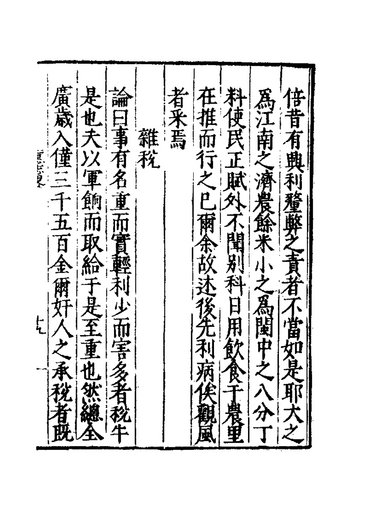 倍昔有興利釐弊之責者不當如是耶大之
為江南之濟農餘米小之為閩中之八分丁
料使民正賦外不聞別科日用飲食于農里
在推而行之已爾余故述後先利病俟觀風
者采焉
雜稅
論曰事有名重而實輕利少而害多者稅牛
是也夫以軍餉而取給于是至重也然總全
廣歲入僅三千五百金爾奸人之承稅者既